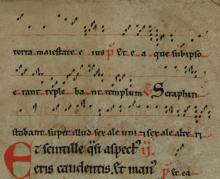 terra maiestate eius et ea que sub ipso
erant replebant templum Seraphin
stabant super illud sex ale uni sex ale alteri
Et scintille qsi aspect
eris candentis. et man
et ea